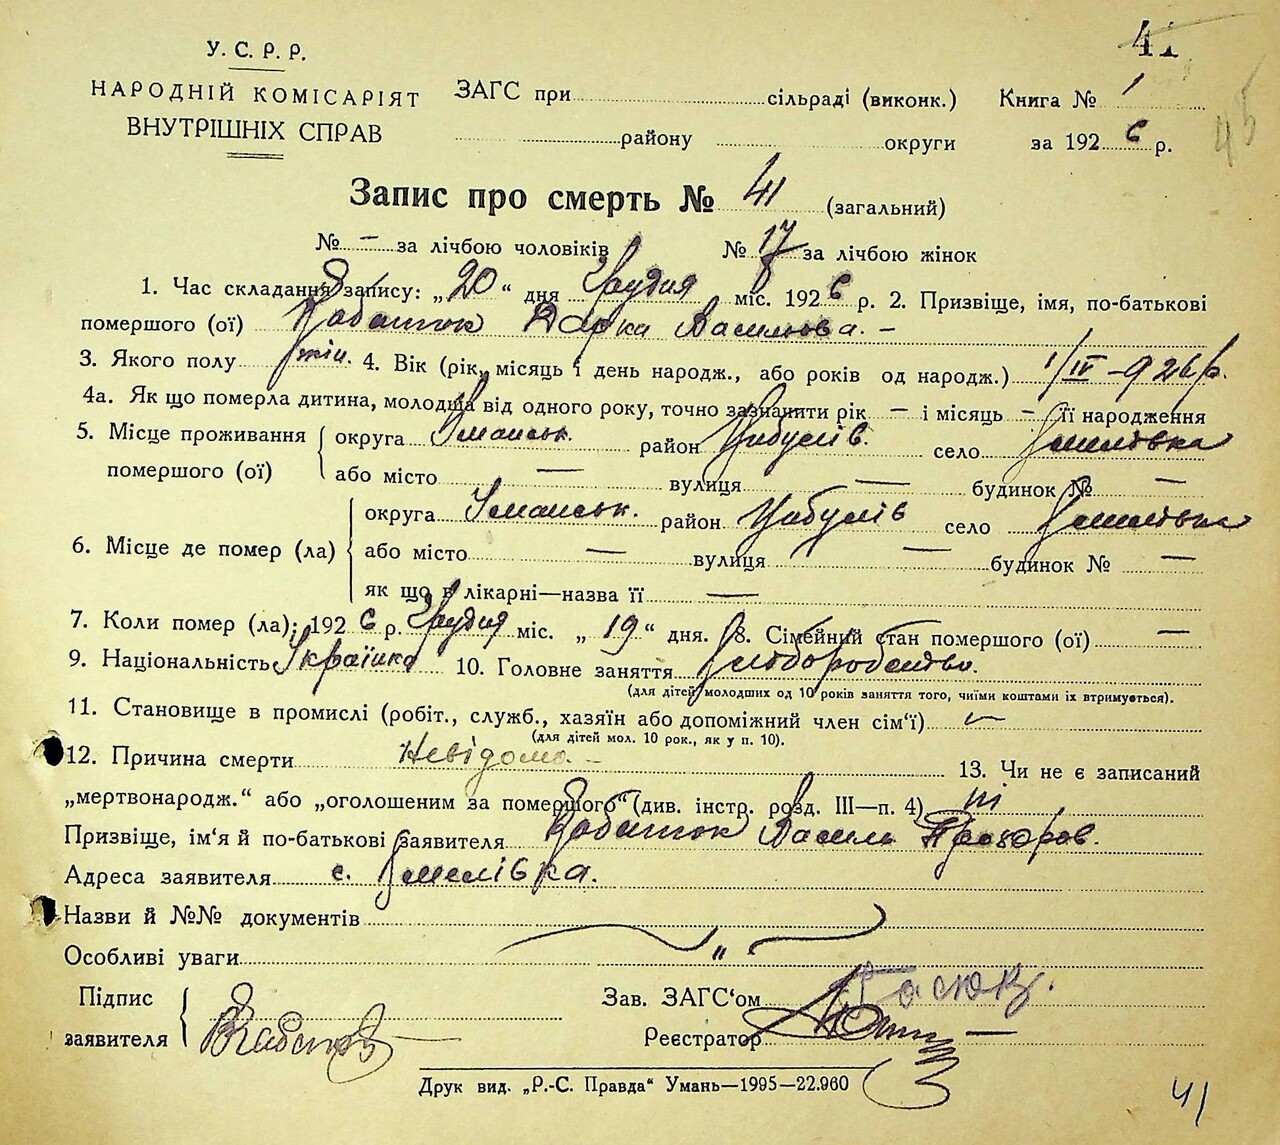 41
45
У. С. Р. Р.
НАРОДНІЙ КОМІСАРІЯТ
ВНУТРІШНІХ СПРАВ
ЗАГС при сільраді (виконк.) Книга № 1
району округи за 1926 р.
Запис про смерть № 41 (загальний)
№ – за лічбою чоловіків № 17 за лічбою жінок
1. Час складання запису: „20“ дня Грудня міс. 1926 р. 2. Призвіще, імя, по-батькові
помершого (ої) Дарка Василова. –
3. Якого полу жін. 4. Вік (рік, місяць і день народж., або років од народж.) 1/IV –926 р.
4а. Як що померла дитина, молодша від одного року, точно зазначити рік – і місяць – її народження
5. Місце проживання помершого (ої) округа Уманськ. район Цибулів. село
або місто — вулиця — будинок № —
6. Місце де помер (ла) округа Уманськ. район Цибулів село
або місто — вулиця — будинок № —
як що в лікарні—назва її —
7. Коли помер (ла): 1926 р. Грудня міс. „19“ дня. 8. Сімейний стан помершого (ої) —
9. Національність Українка 10. Головне заняття Хліборобство.
(для дітей молодших од 10 років заняття того, чиїми коштами їх втримується).
11. Становище в промислі (робіт., служб., хазяїн або допоміжний член сім‘ї) –
(для дітей мол. 10 рок., як у п. 10).
12. Причина смерти Невідома – 13. Чи не є записаний
„мертвонародж.“ або „оголошеним за помершого“ (див. інстр. розд. III—п. 4) ні
Призвіще, ім‘я й по-батькові заявителя Василь Прохоров.
Адреса заявителя с.
Назви й №№ документів
Особливі уваги „
Підпис заявителя
Зав. ЗАГС‘ом
Реєстратор
Друк вид. „Р.-С. Правда“ Умань—1995—22.960
41